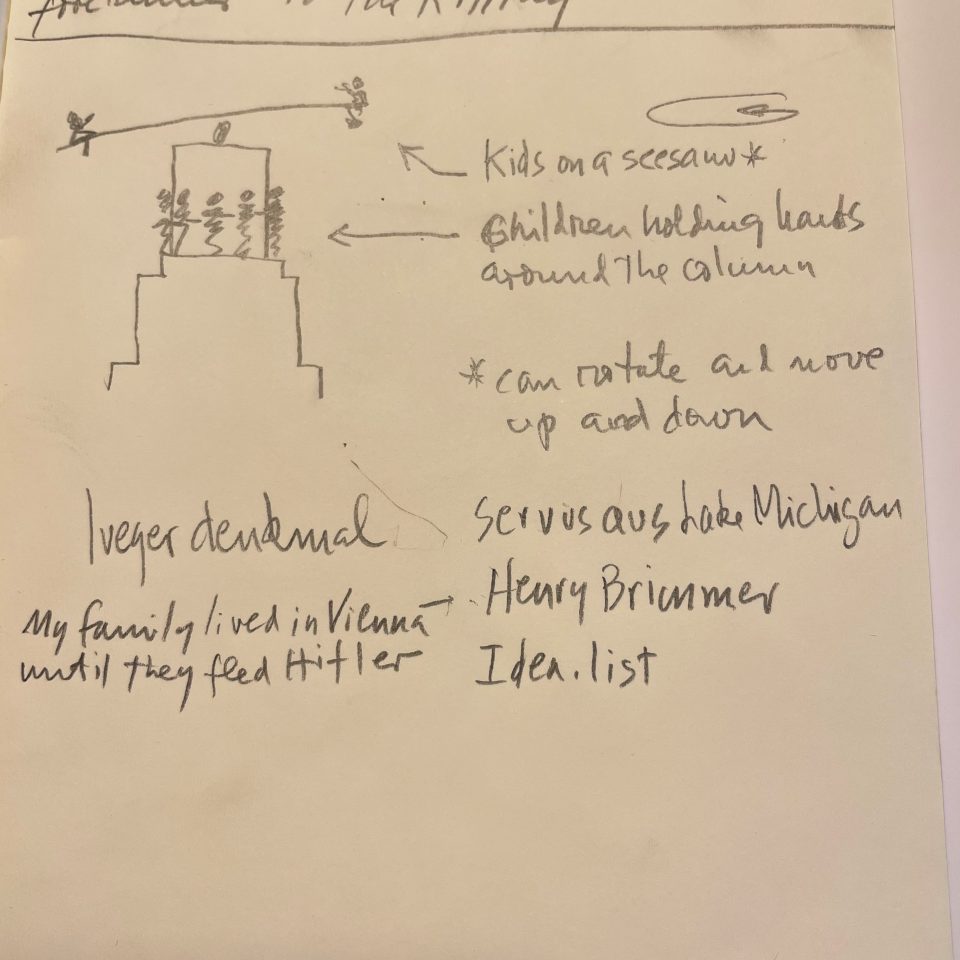 to the
Kids on a seesaw*
Children holding hands
around the column
*can rotate and move
up and down
lueger denkmal
servus aus Lake Michigan
My family lived in Vienna →
until they fled Hitler
Henry Brimmer
Idea.list